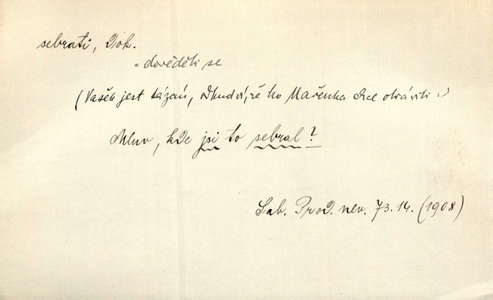 sebrati, Dok.
„dověděti se
(Vašek jest tázán, že ho Mařenka chce otráviti:)
Mluv, kde jsi to sebral?
Sab. Prod. nev. 73.14. (1908)